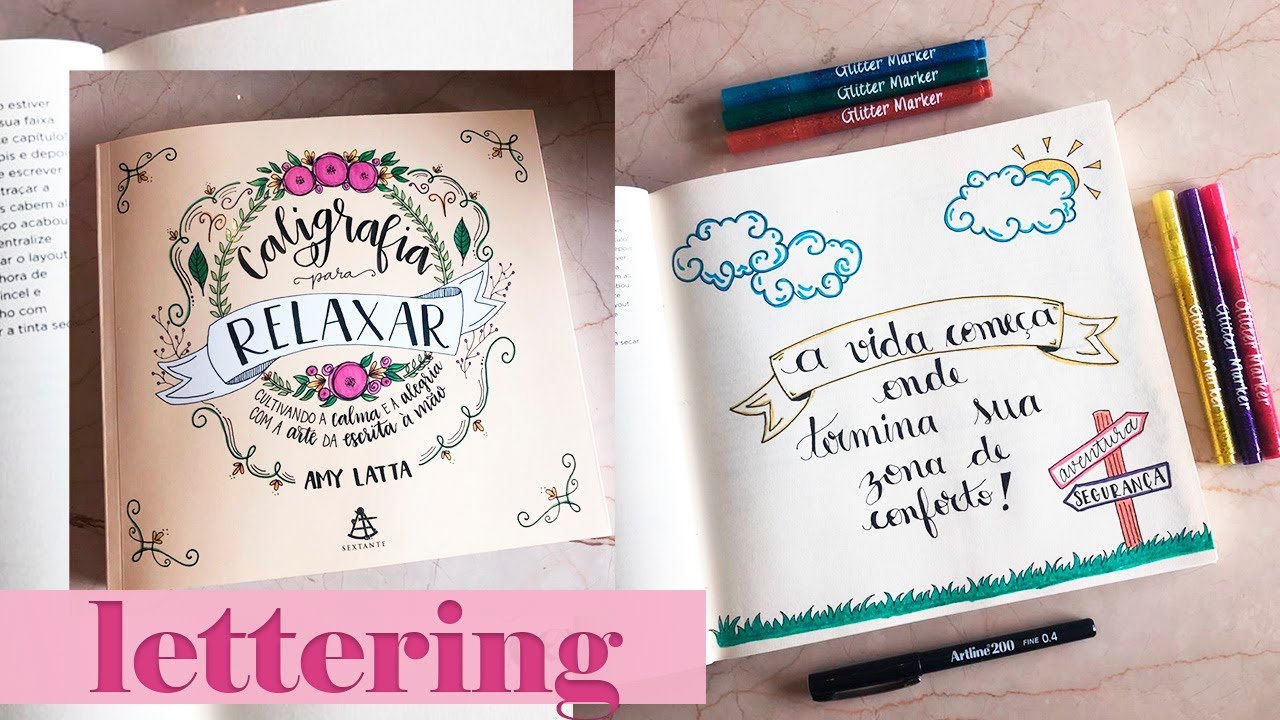 o estiver
sua faixa
te capítulo!
ois e depois
e escrever
traçar a
s cabem al
ço acabou
entralize
ar o layout
hora de
incel e
ho com
r a tinta sec
Caligrafia
para
RELAXAR
CULTIVANDO A calma E A alegria
COM A arte DA escrita À mão
AMY LATTA
SEXTANTE
lettering
Glitter Marker
Glitter Marker
Glitter Marker
a vida começa
onde
termina sua
zona de
conforto!
aventura
SEGURANÇA
Glitter Marker
Glitter Marker
Glitter Marker
a secar
Artline 200 FINE 0.4